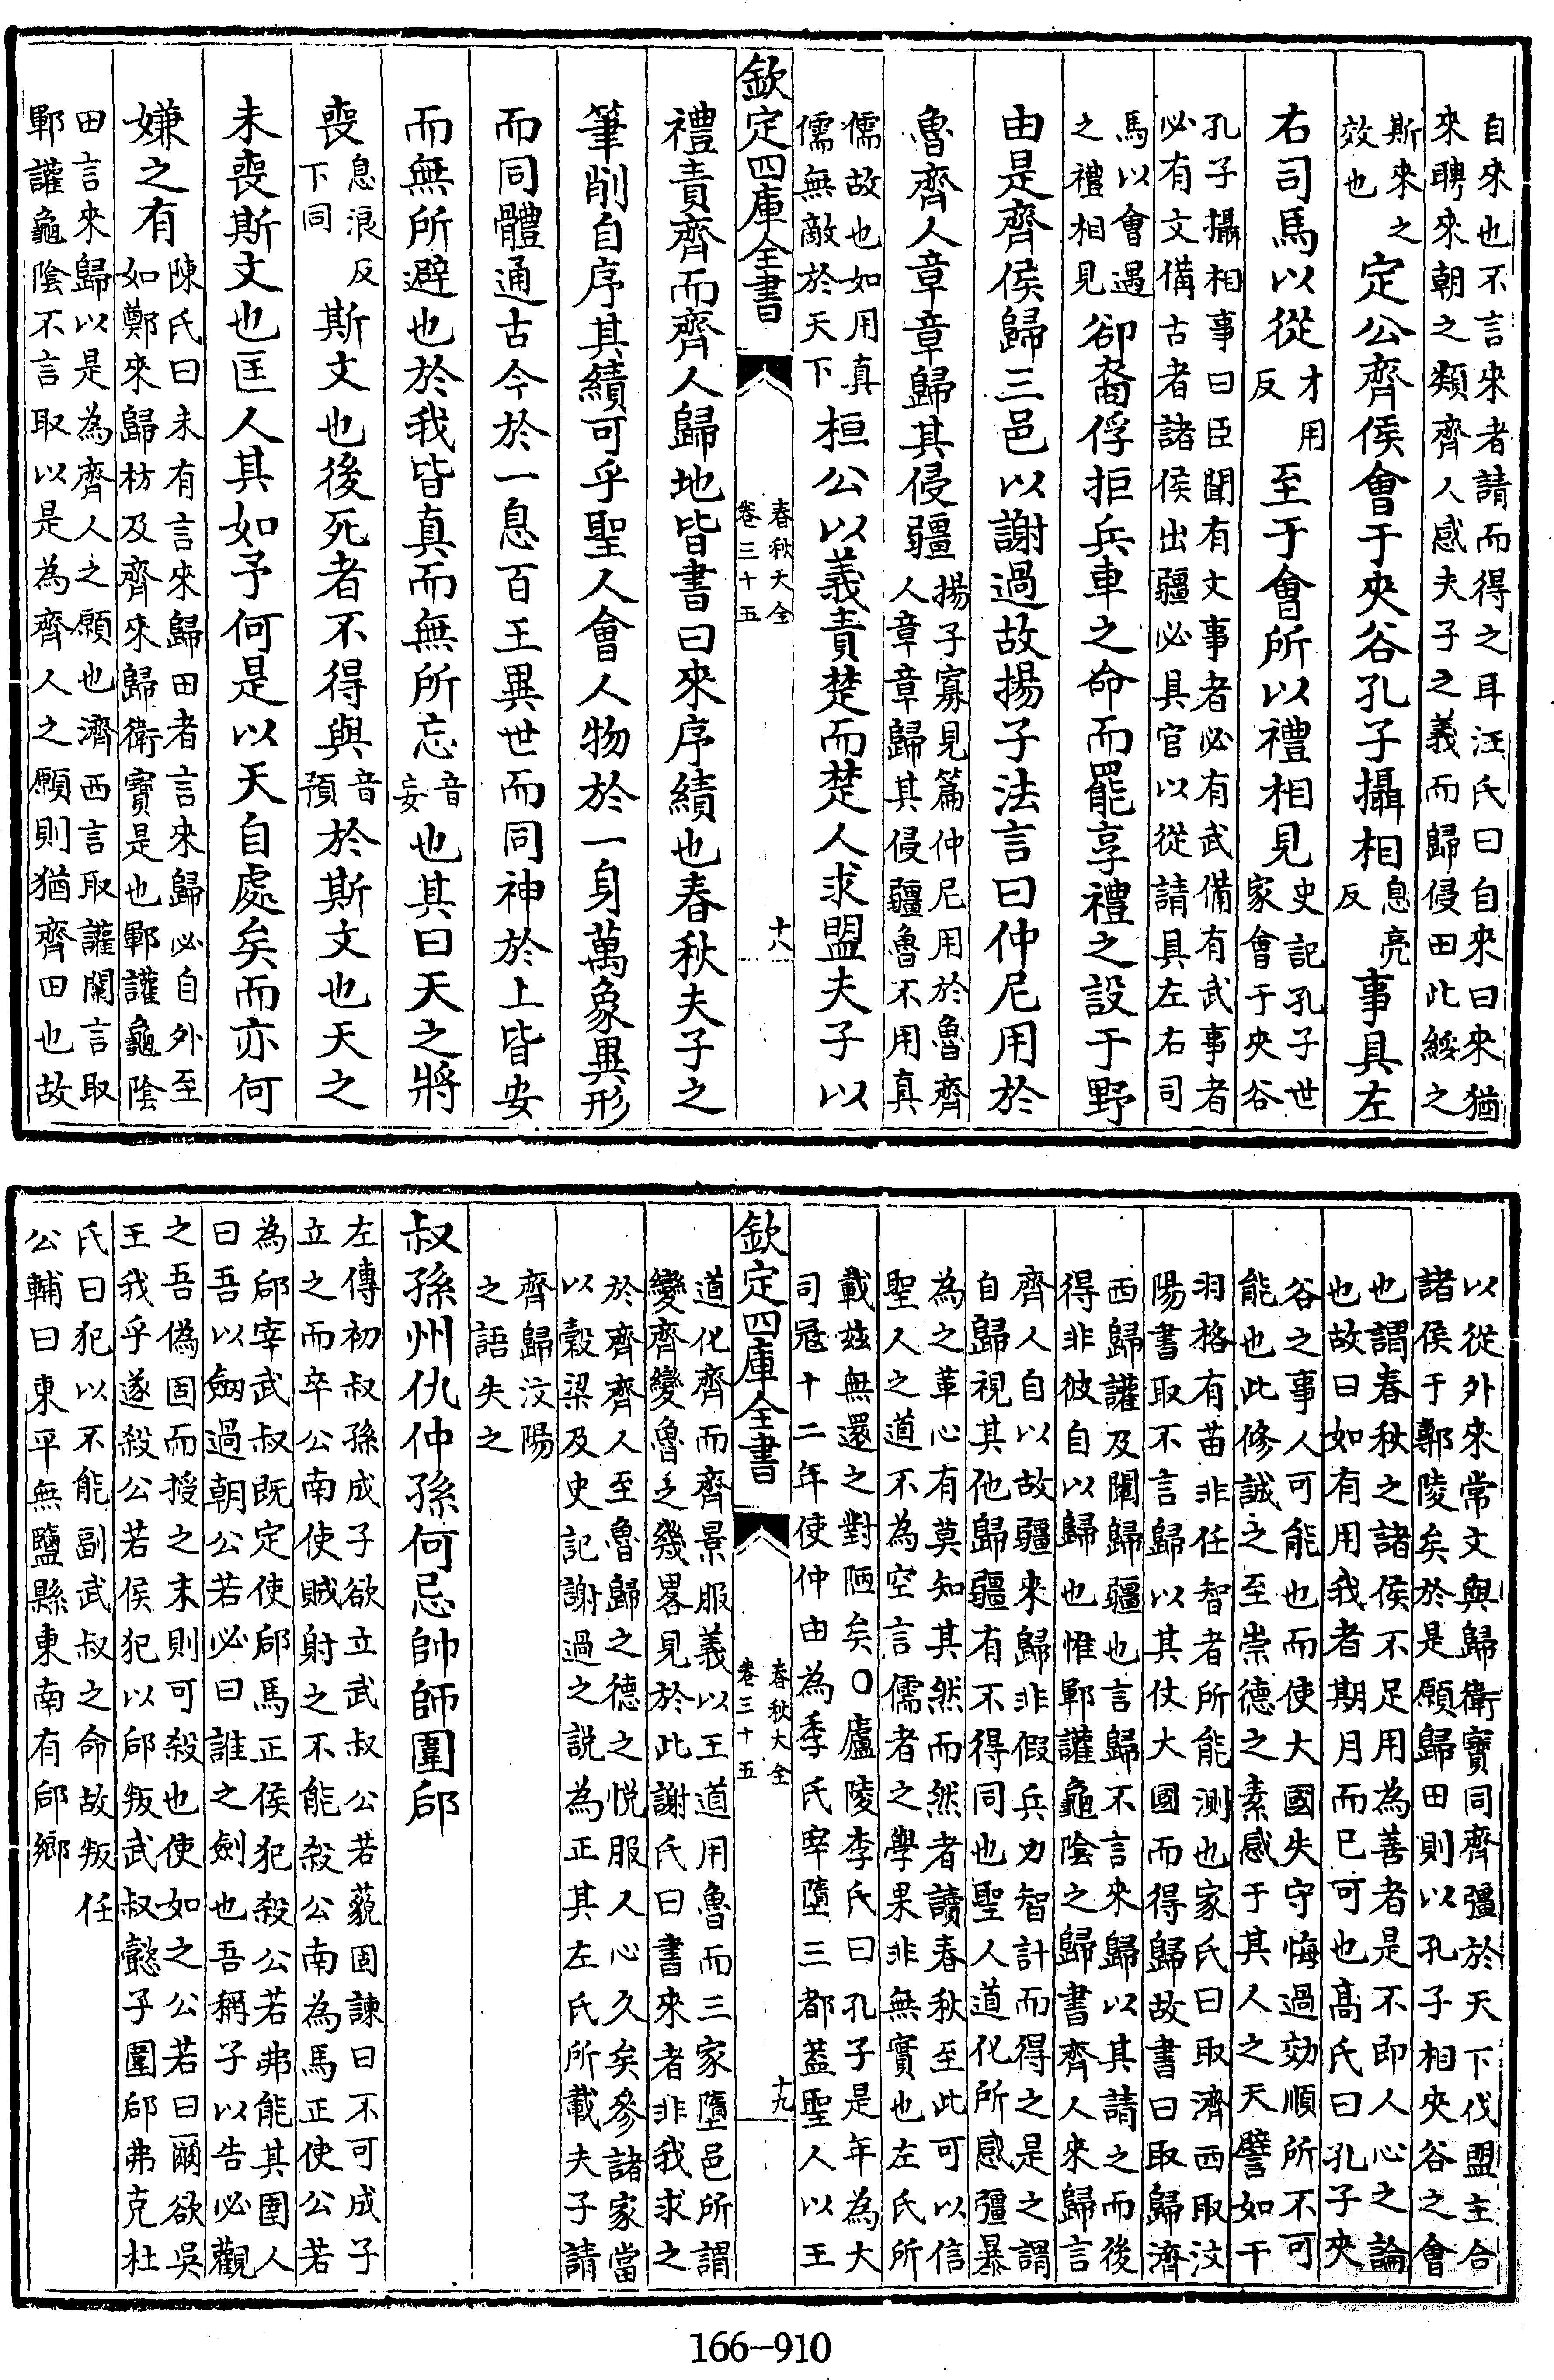 自來也不言來者請而得之耳汪氏曰自來曰來猶
來聘來朝之類齊人感夫子之義而歸侵田此綏之
斯來之
效也
定公齊侯會于夾谷孔子攝相
息亮
反
事具左
右司馬以從
才用
反
至于會所以禮相見
史記孔子世
家會于夾谷
孔子攝相事曰臣聞有文事者必有武備有武事者
必有文備古者諸侯出疆必具官以從請具左右司
馬以會遇
之禮相見
卻裔俘拒兵車之命而罷享禮之設于野
由是齊侯歸三邑以謝過故揚子法言曰仲尼用於
魯齊人章章歸其侵疆
揚子寡見篇仲尼用於魯齊
人章章歸其侵疆魯不用真
儒故也如用真
儒無敵於天下
桓公以義責楚而楚人求盟夫子以
欽定四庫全書
春秋大全
卷三十五
十八
禮責齊而齊人歸地皆書曰來序績也春秋夫子之
筆削自序其績可乎聖人會人物於一身萬象異形
而同體通古今於一息百王異世而同神於上皆安
而無所避也於我皆真而無所忘
音
妄
也其曰天之將
喪
息浪反
下同
斯文也後死者不得與
音
預
於斯文也天之
未喪斯文也匡人其如予何是以天自處矣而亦何
嫌之有
陳氏曰未有言來歸田者言來歸必自外至
如鄭來歸枋及齊來歸衛寶是也鄆讙龜陰
田言來歸以是為齊人之願也濟西言取讙闡言取
鄆讙龜陰不言取以是為齊人之願則猶齊田也故
以從外來常文與歸衛寶同齊彊於天下伐盟主合
諸侯于鄟陵矣於是願歸田則以孔子相夾谷之會
也謂春秋之諸侯不足用為善者是不即人心之論
也故曰如有用我者期月而已可也髙氏曰孔子夾
谷之事人可能也而使大國失守悔過効順所不可
能也此修誠之至崇德之素感于其人之天譬如干
羽格有苗非任智者所能測也家氏曰取濟西取汶
陽書取不言歸以其仗大國而得歸故書曰取歸濟
西歸讙及闡歸疆也言歸不言來歸以其請之而後
得非彼自以歸也惟鄆讙龜陰之歸書齊人來歸言
齊人自以故疆來歸非假兵力智計而得之是之謂
自歸視其他歸疆有不得同也聖人道化所感彊暴
為之革心有莫知其然而然者讀春秋至此可以信
聖人之道不為空言儒者之學果非無實也左氏所
載兹無還之對陋矣○廬陵李氏曰孔子是年為大
司冦十二年使仲由為季氏宰墮三都葢聖人以王
欽定四庫全書
春秋大全
卷三十五
十九
道化齊而齊景服義以王道用魯而三家墮邑所謂
變齊變魯之幾畧見於此謝氏曰書來者非我求之
於齊齊人至魯歸之德之悅服人心久矣參諸家當
以穀梁及史記謝過之説為正其左氏所載夫子請
齊歸汶陽
之語失之
叔孫州仇仲孫何忌帥師圍郈
左傳初叔孫成子欲立武叔公若藐固諫曰不可成子
立之而卒公南使賊射之不能殺公南為馬正使公若
為郈宰武叔既定使郈馬正侯犯殺公若弗能其圉人
曰吾以劔過朝公若必曰誰之劍也吾稱子以告必觀
之吾偽固而授之末則可殺也使如之公若曰爾欲吳
王我乎遂殺公若侯犯以郈叛武叔懿子圍郈弗克杜
氏曰犯以不能副武叔之命故叛任
公輔曰東平無鹽縣東南有郈鄉
166-910